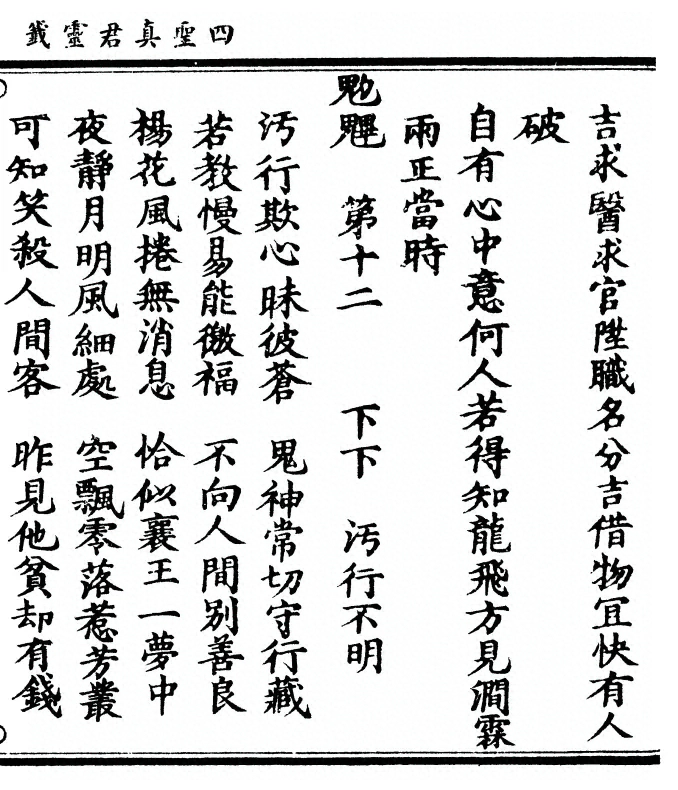 四聖真君靈籤
吉求醫求官陞職名分吉借物宜快有人
破
自有心中意何人若得知龍飛方見澗霖
雨正當時
第十二　下下　汚行不明
汚行欺心昧彼蒼　鬼神常切守行藏
若教慢易能徼福　不向人間別善良
楊花風捲無消息　恰似襄王一夢中
夜靜月明風細處　空飄零落惹芳叢
可知笑殺人間客　昨見他貧却有錢